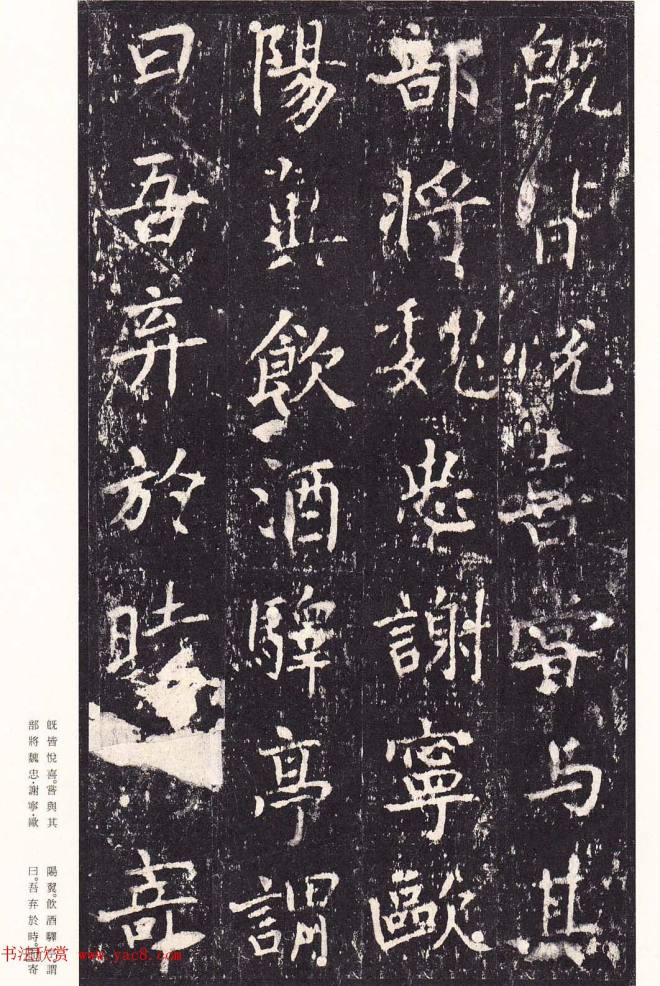 既皆悅喜甞与其
部將魏忠謝寧歐
陽翼飲酒驛亭謂
曰吾弃於時寄
既皆悅喜。嘗與其
部將魏忠·謝寧·歐
陽翼。飲酒驛亭謂
曰。吾弃於時。寄
书法欣赏 www.yac8.com